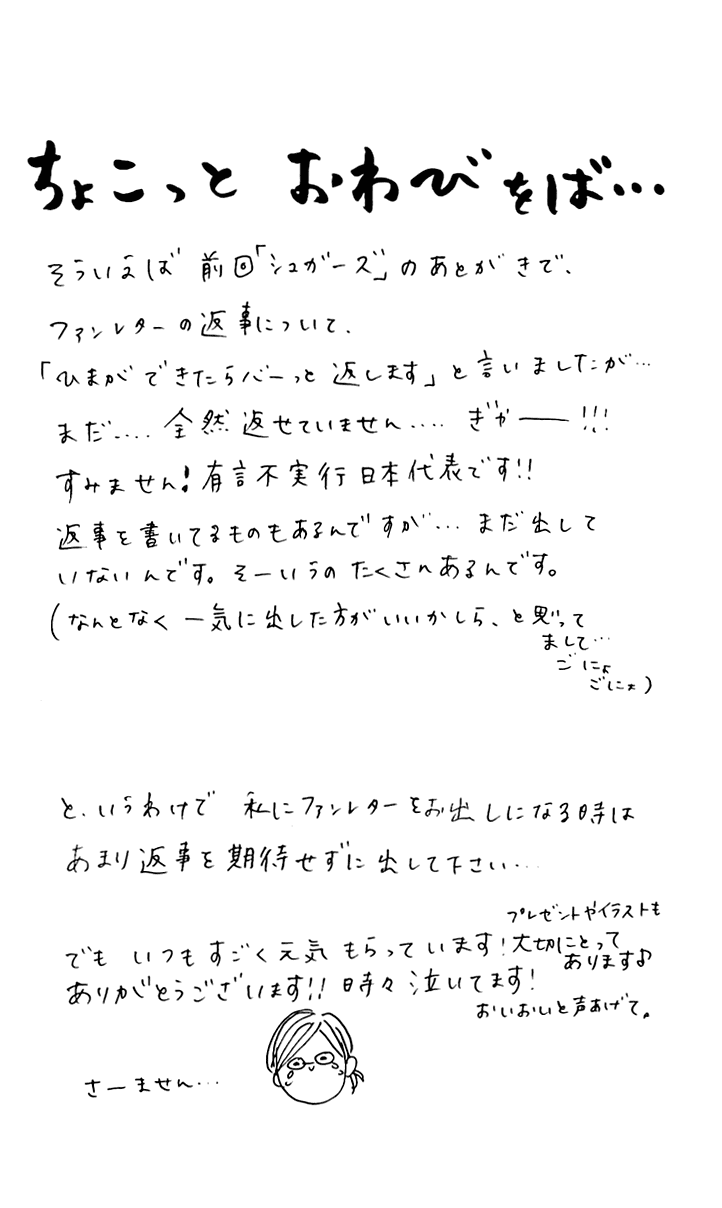 ちょこっと おわびをば…
そういえば 前回「シュガーズ」のあとがきで、
ファンレターの返事について、
「ひまができたらバーっと 返します」と言いましたが…
まだ‥‥ 全然返せていません‥‥ ぎゃー!!!
すみません!有言不実行日本代表です!!
返事を書いてるものもあるんですが… まだ出して
いないんです。そーいうの たくさんあるんです。
(なんとなく 一気に出した方がいいかしら、と思って
まして…
ごにょ
ごにょ)
と、いうわけで 私にファンレターをお出しになる時は
あまり返事を期待せずに出して下さい…
プレゼントやイラストも
大切にとって
あります♪
でも いつもすごく元気もらっています!
ありがとうございます!! 時々泣いてます!
おいおいと声あげて。
さーません…